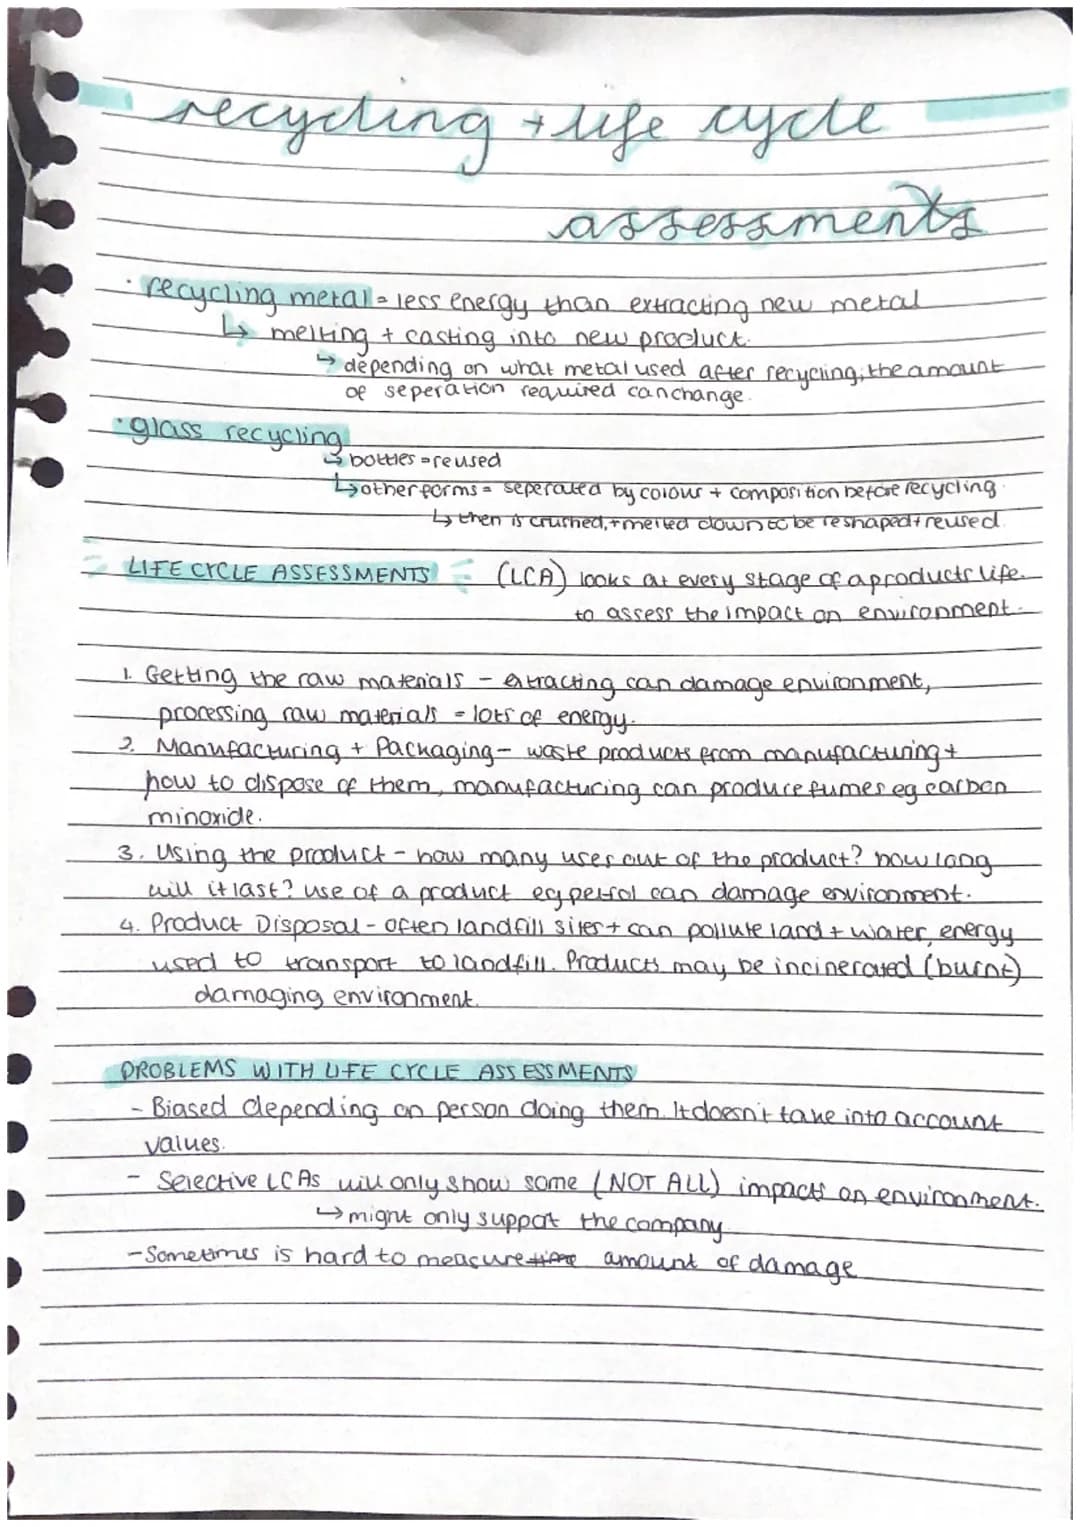 recycling + life cycle
assessments
· recycling metal = less energy than extracting new metal
↳ melting + casting into new product.
↳ depending on what metal used after recycling, the amount
of seperation required can change.
· glass recycling
↳ bottles = reused
↳ other forms = seperated by colour + composition before recycling.
↳ then is crushed, + melted down to be reshaped + reused.
LIFE CYCLE ASSESSMENTS (LCA) looks at every stage of a products life
to assess the impact on environment.
1. Getting the raw materials - extracting can damage environment,
processing raw materials = lots of energy.
2. Manufacturing + Packaging - waste products from manufacturing +
how to dispose of them, manufacturing can produce fumes eg carbon
minoxide.
3. Using the product - how many uses out of the product? how long
will it last? use of a product eg petrol can damage environment.
4. Product Disposal - often landfill sites + can pollute land + water, energy
used to transport to landfill. Products may be incinerated (burnt)
damaging environment.
PROBLEMS WITH LIFE CYCLE ASSESSMENTS
- Biased depending on person doing them. It doesn't take into account
values.
- Selective LCAs will only show some (NOT ALL) impacts on environment.
↳ might only support the company
- Sometimes is hard to measure amount of damage